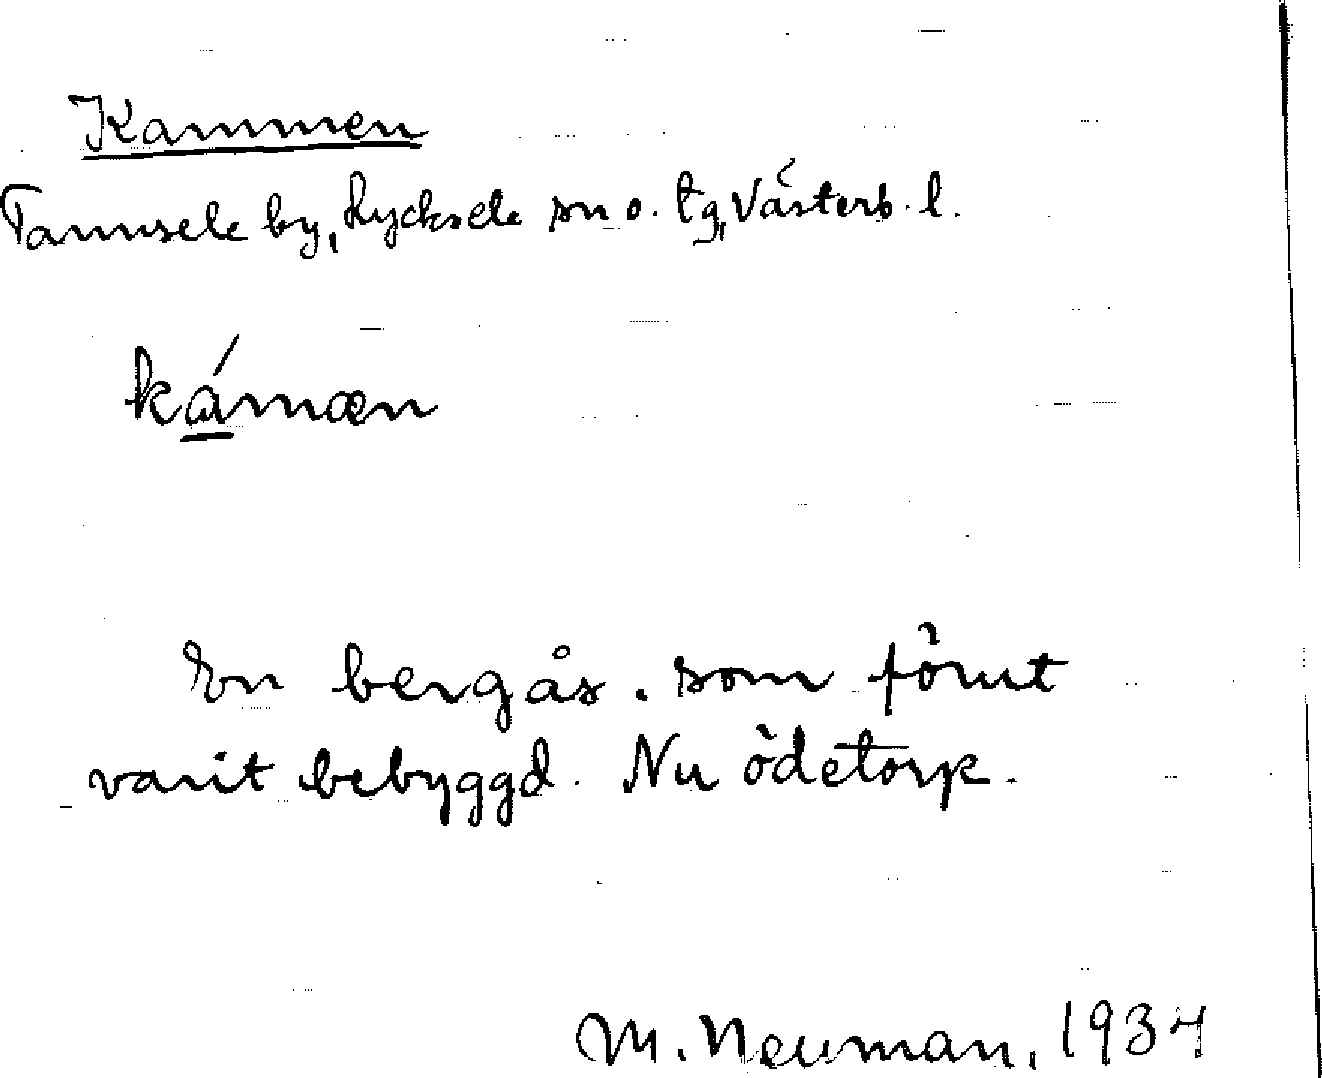 Kammen
Tannsele by, Lycksele sn o. tg, Västerb. l.
kámæn
En bergås. som förut
varit bebyggd. Nu ödetorp.
M. Neuman, 1934